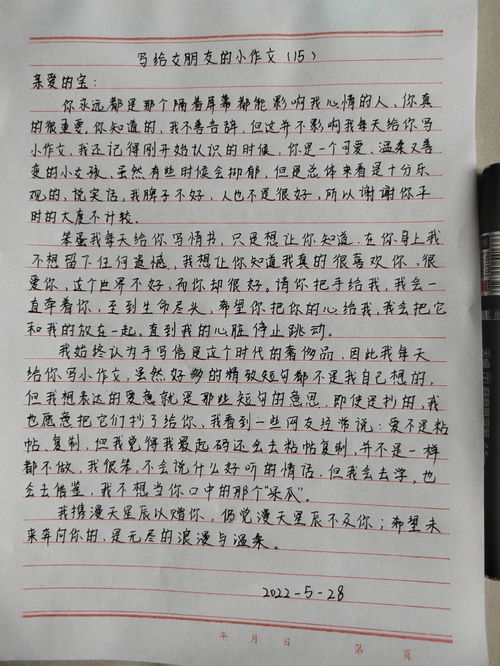 写给女朋友的小作文（15）
亲爱的宝：
你永远都是那个隔着屏幕都能影响我心情的人、你真
的很重要，你知道的，我不善言辞，但这并不影响我每天给你写
小作文，我还记得刚开始认识的时候，你是一个可爱、温柔又善
变的小女孩，虽然有些时候会抑郁，但是总体来看是十分乐
观的，说实话，我脾子不好，人也不是很好，所以谢谢你平
时的大度不计较。
笨蛋我每天给你写情书，只是想让你知道，在你身上我
不想留下任何遗憾，我想让你知道我真的很喜欢你、很
爱你，这个世界不好，而你却很好，请你把手给我，我会一
直牵着你，至到生命尽头，希望你把你的心给我，我会把它
和我的放在一起，直到我的心脏停止跳动。
我始终认为手写信是这个时代的奢侈品，因此我每天
给你写小作文，虽然好多的精致短句都不是我自己想的，
但我想表达的爱意就是那些短句的意思，即使是抄的，我
也愿意把它们抄了给你、我看到一些网友经常说：爱不是粘
帖、复制，但我觉得我最起码还会去粘帖复制，并不是一样
都不做，我很笨，不会说什么好听的情话，但我会去学，也
会去借鉴，我不想当你口中的那个“呆瓜”。
我携漫天星辰以赠你，仍觉漫天星辰不及你；希望未
来奔向你的，是无尽的浪漫与温柔。
2022-5-28
年 月 日 第 页